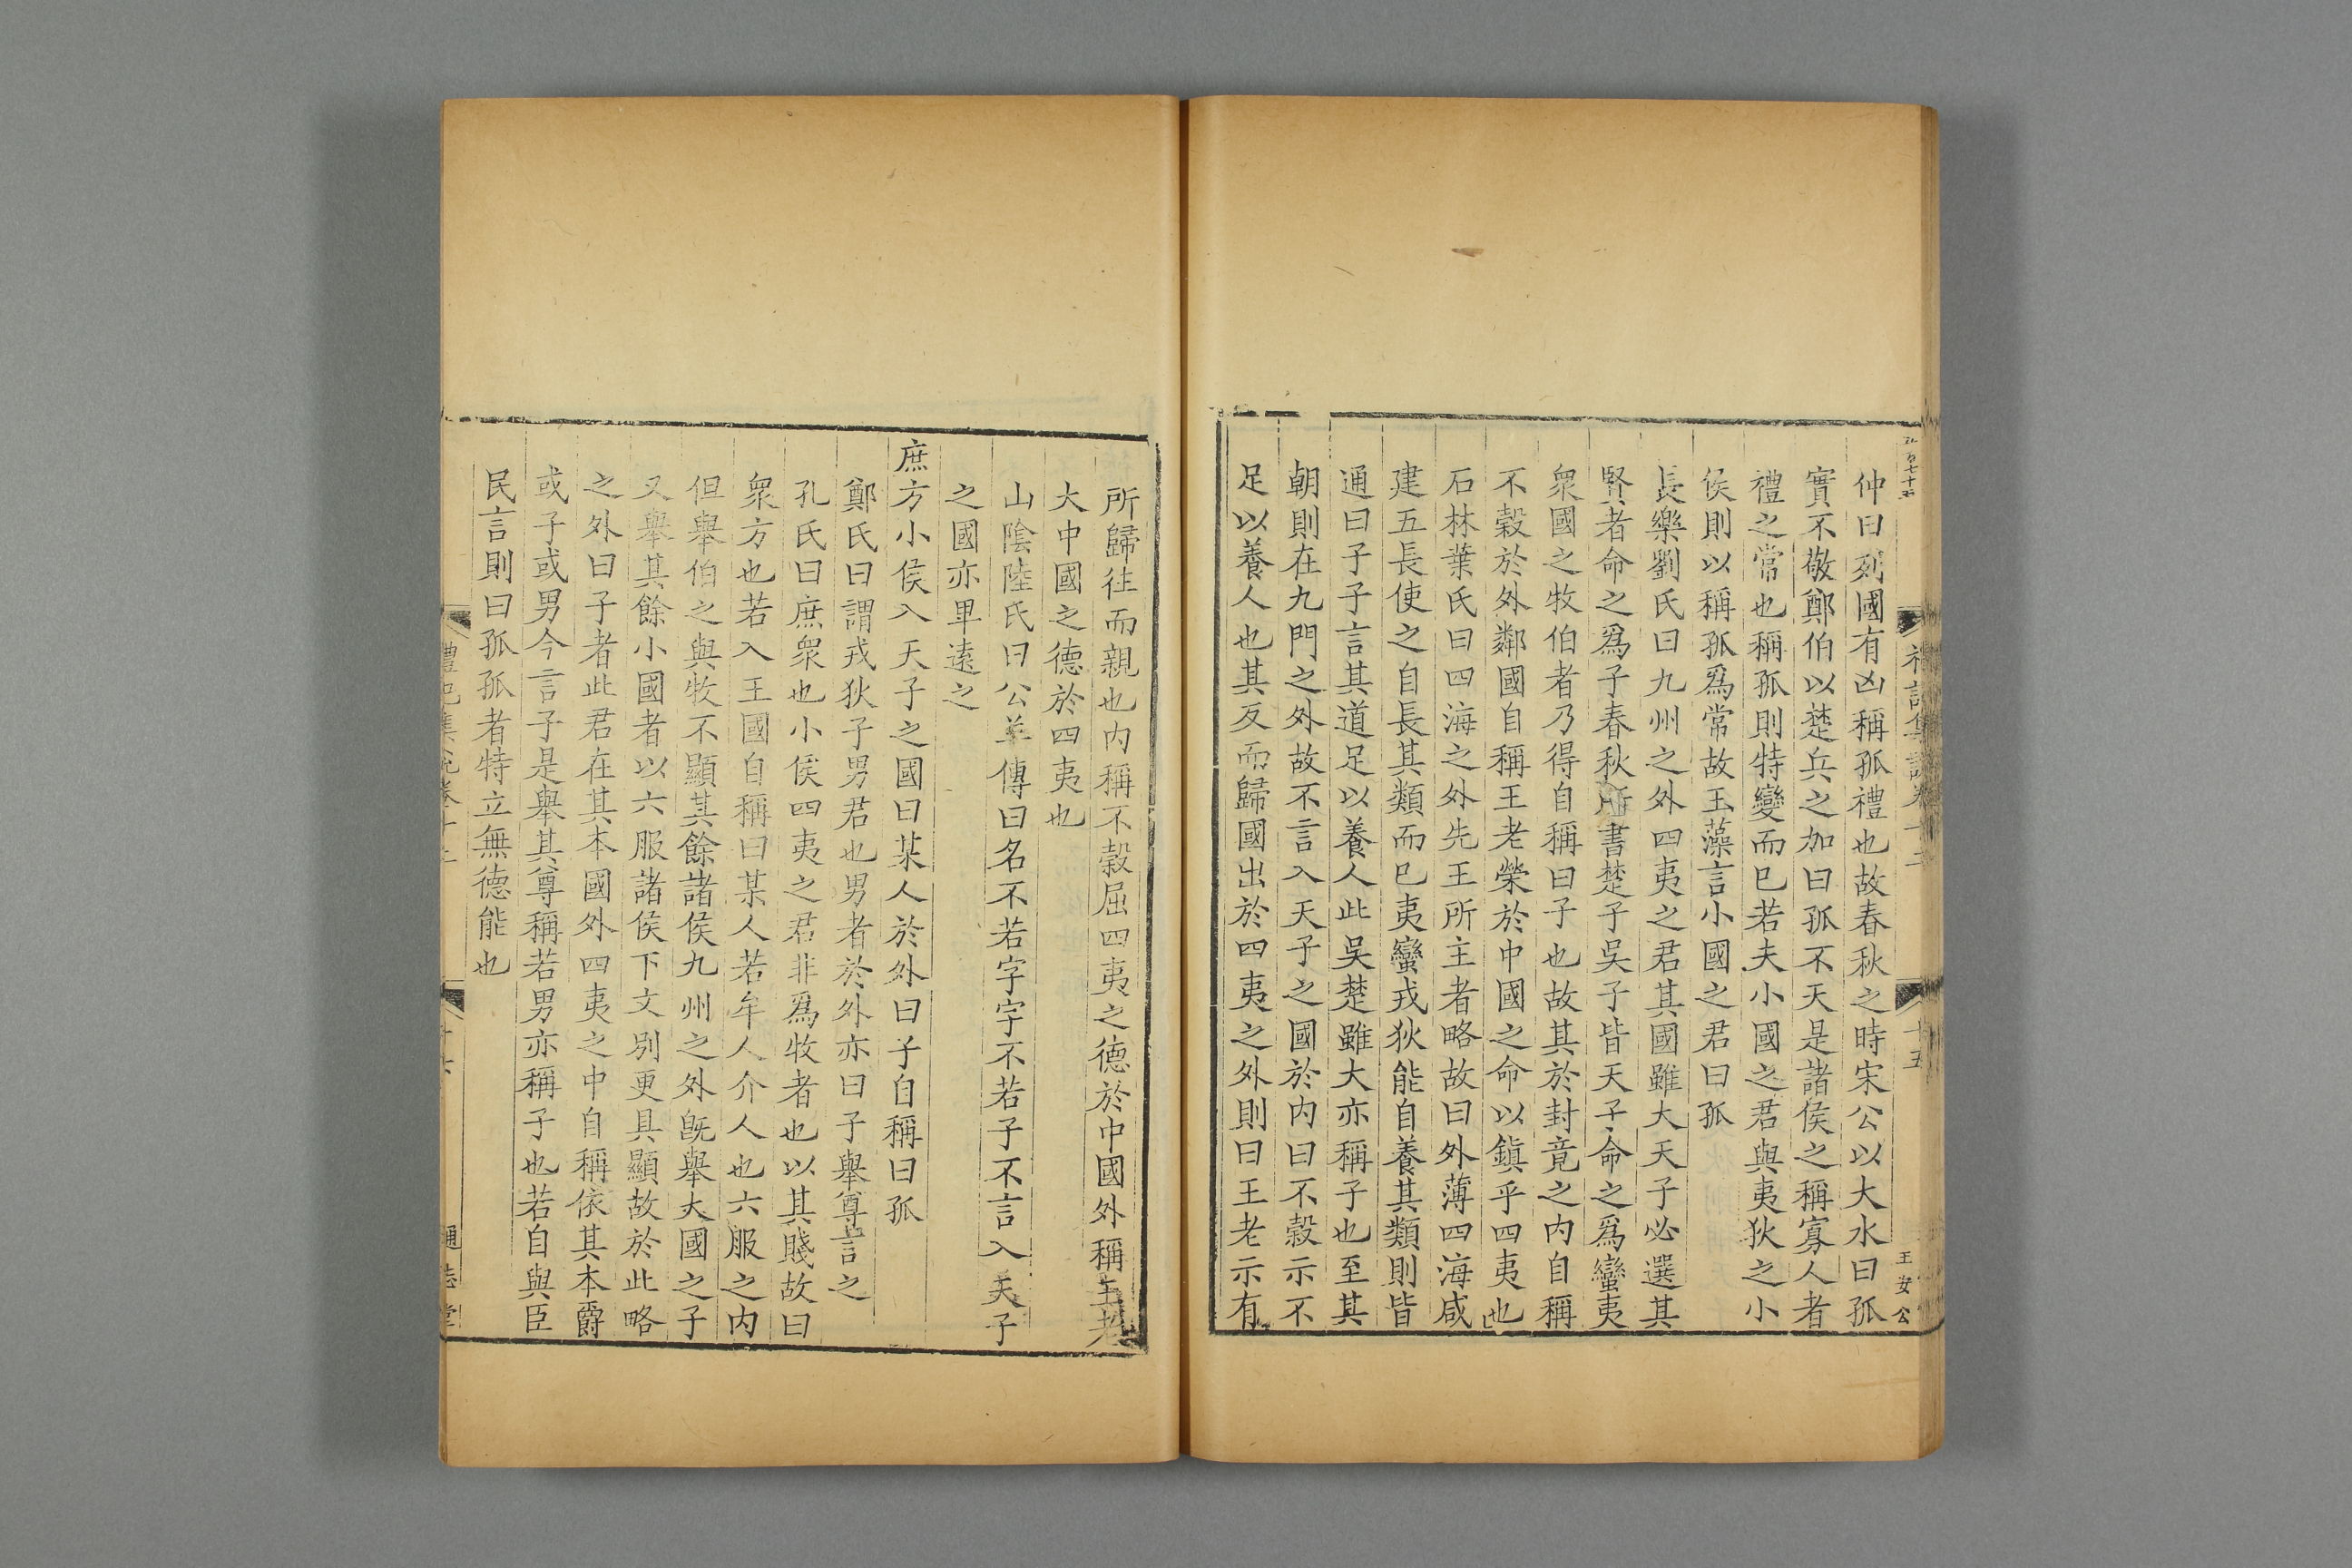 仲曰列國有凶稱孤禮也故春秋之時宋公以大水曰孤
實不敬鄭伯以楚兵之加曰孤不天是諸侯之稱寡人者
禮之常也稱孤則特變而已若夫小國之君與夷狄之小
侯則以稱孤爲常故玉藻言小國之君曰孤
長樂劉氏曰九州之外四夷之君其國雖大天子必選其
賢者命之爲子春秋所書楚子吳子皆天子命之爲蠻夷
衆國之牧伯者乃得自稱曰子也故其於封竟之内自稱
不穀於外鄰國自稱王老榮於中國之命以鎮乎四夷也
石林葉氏曰四海之外先王所主者略故曰外薄四海咸
建五長使之自長其類而已夷蠻戎狄能自養其類則皆
通曰子子言其道足以養人此吳楚雖大亦稱子也至其
朝則在九門之外故不言入天子之國於内曰不穀示不
足以養人也其反而歸國出於四夷之外則曰王老示有
十五
王安公
所歸往而親也内稱不穀屈四夷之德於中國外稱王老
大中國之德於四夷也
山陰陸氏曰公羊傳曰名不若字字不若子不言入天子
之國亦卑遠之
庶方小侯入天子之國曰某人於外曰子自稱曰孤
鄭氏曰謂戎狄子男君也男者於外亦曰子舉尊言之
孔氏曰庶衆也小侯四夷之君非爲牧者也以其賤故曰
衆方也若入王國自稱曰某人若牟人介人也六服之内
但舉伯之與牧不顯其餘諸侯九州之外旣舉大國之子
又舉其餘小國者以六服諸侯下文別更具顯故於此略
之外曰子者此君在其本國外四夷之中自稱依其本爵
或子或男今言子是舉其尊稱若男亦稱子也若自與臣
民言則曰孤孤者特立無德能也
禮記集說卷十二
通志堂